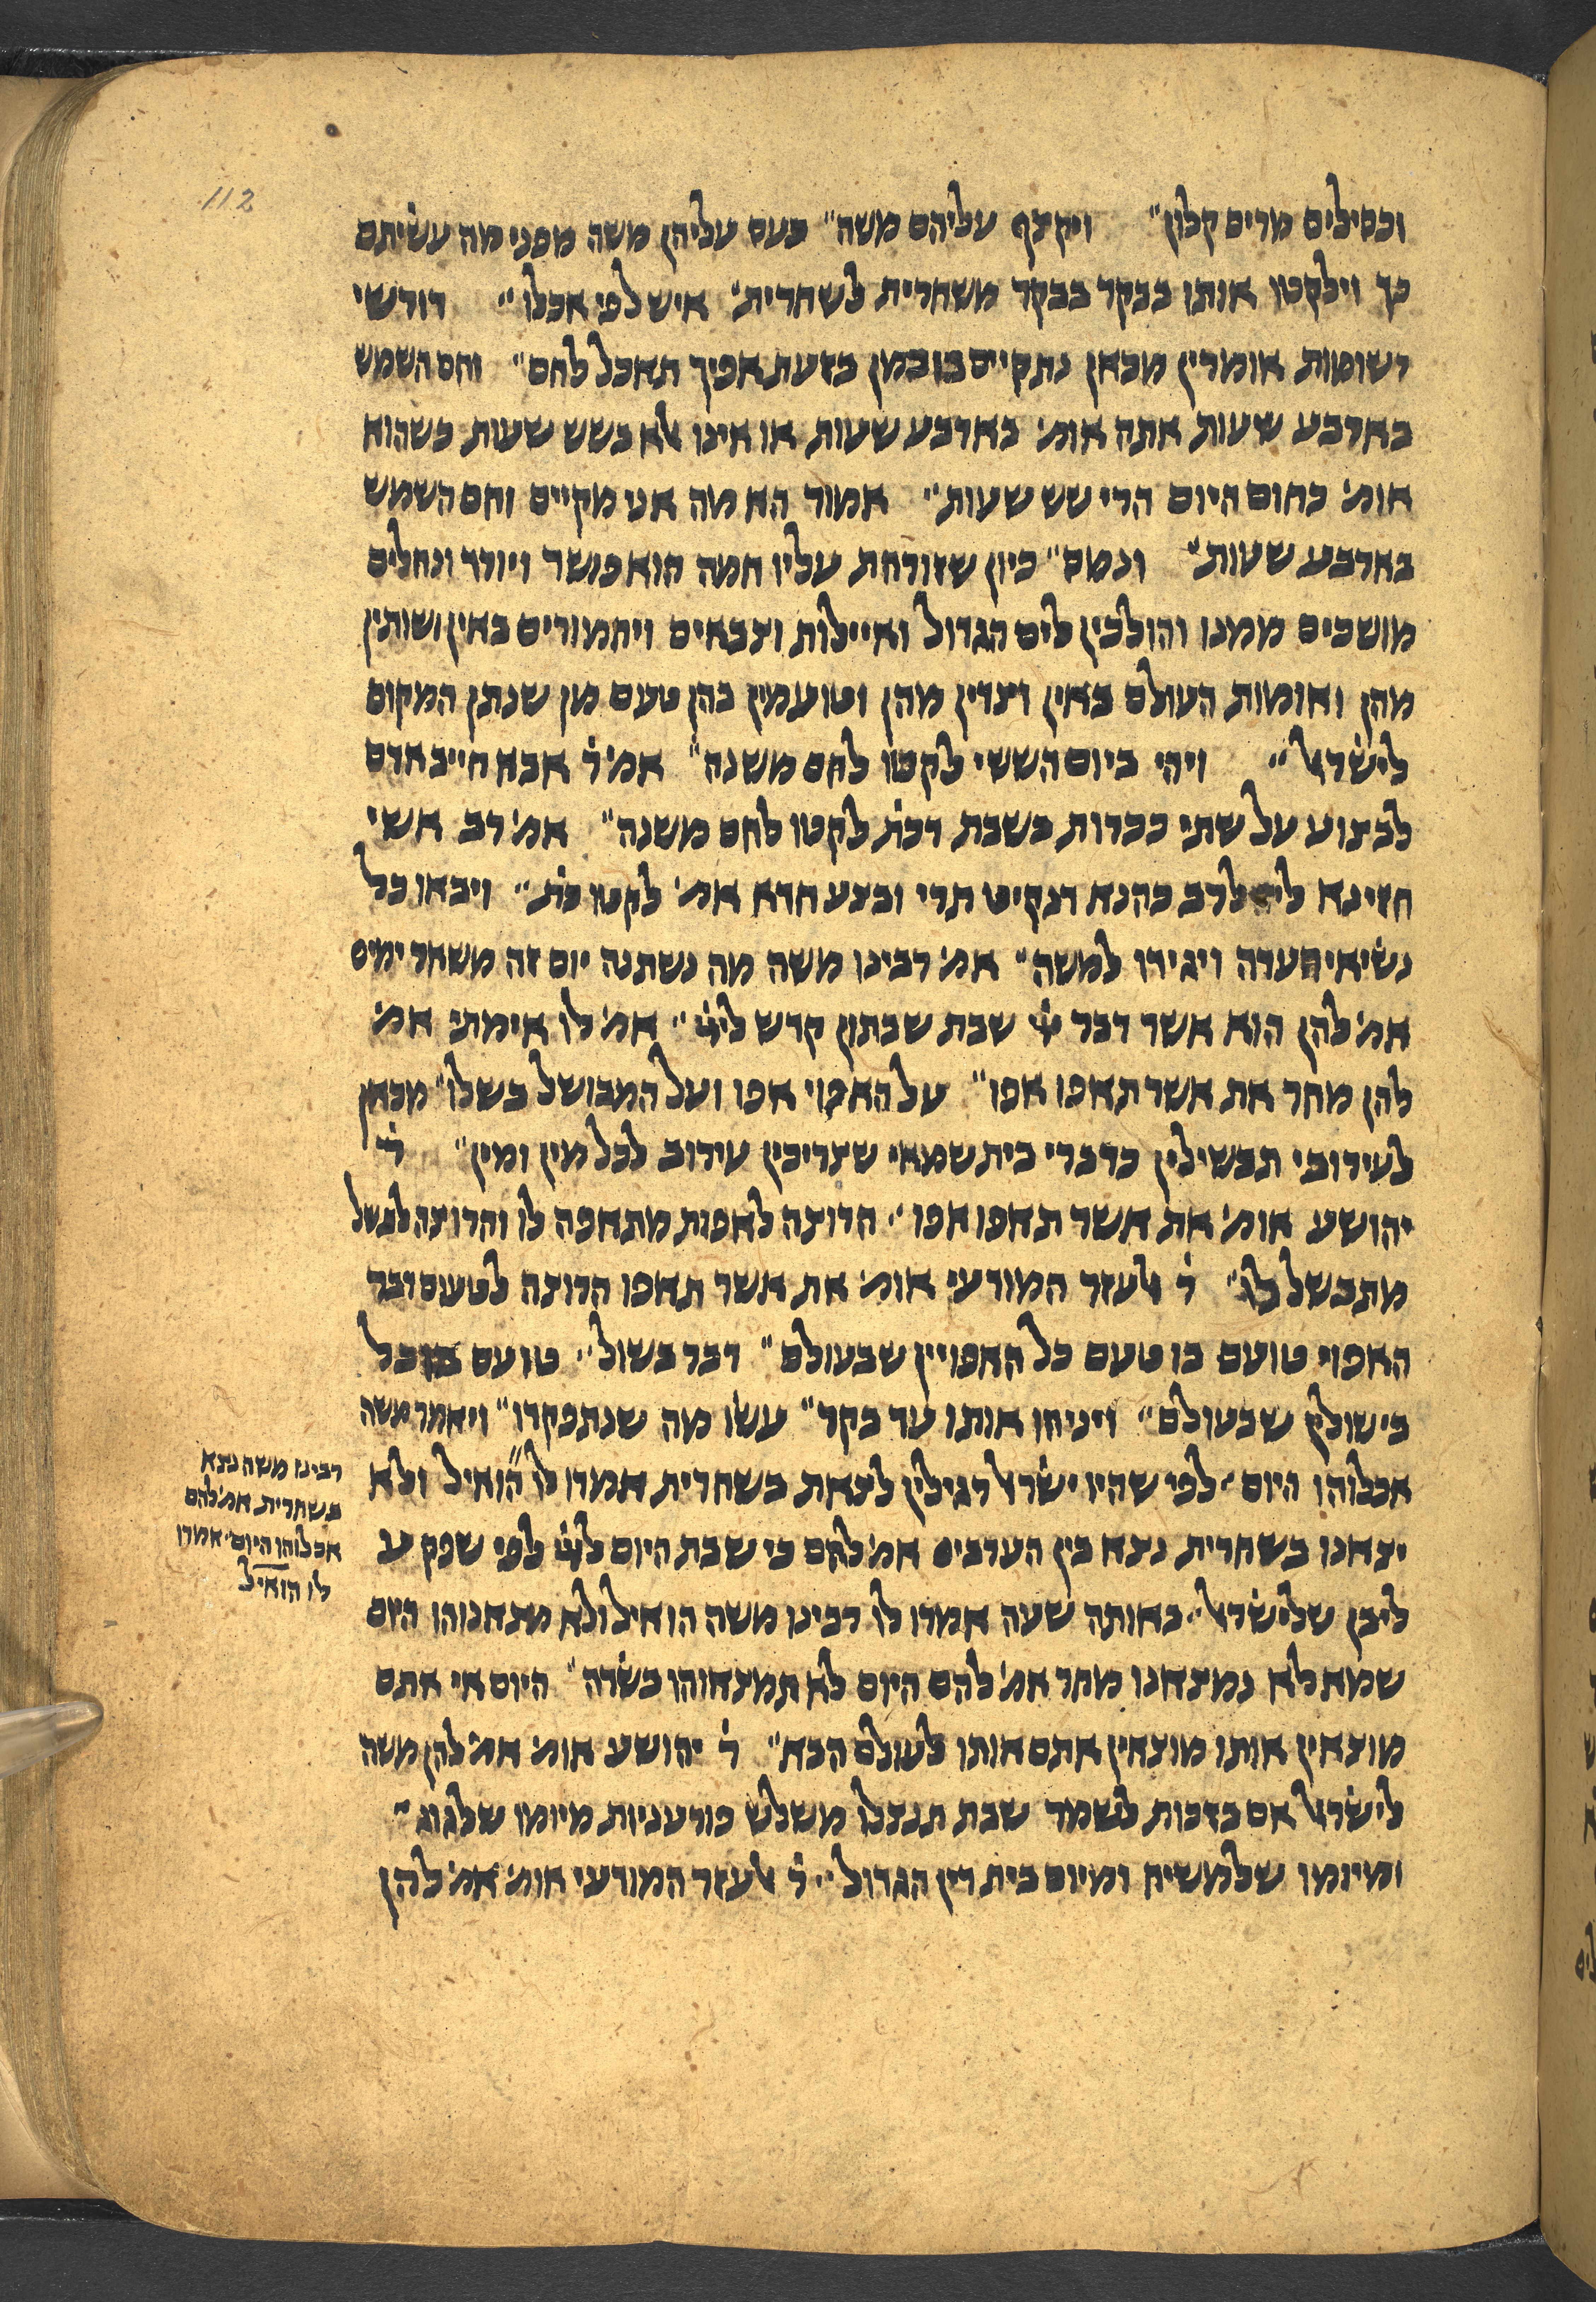 112
וכסילים מרים קלון״ ויקצף עליהם משה״ כעס עליהן משה מפני מה עשיתם
כך וילקטו אותו בבקר בבקר משחרית לשחרית׳ איש לפי אכלו״ דורשי
רשומות אומרין מכאן נתקיים בו במן בזעת אפיך תאכל לחם״ וחם השמש
בארבע שעות אתה אומ׳ בארבע שעות או אינו אלא בשש שעות כשהוא
אומ׳ כחום היום הרי שש שעות״ אמור הא מה אני מקיים וחם השמש
בארבע שעות״ ונמס״ כיון שזורחת עליו חמה הוא פושר ויורד ונחלים
מושכים ממנו והולכין לים הגדול ואיילות וצבאים ויחמורים באין ושותין
מהן ואומות העולם באין וצדין מהן וטועמין בהן טעם מן שנתן המקום
לישראל״ ויהי ביום הששי לקטו לחם משנה״ אמ׳ ר׳ אבא חייב אדם
לבצוע על שתי ככרות בשבת דכת׳ לקטו לחם משנה״ אמ׳ רב אשי
חזינא ליה לרב כהנא דנקיט תרי ובצע חדא אמ׳ לקטו כת׳״ ויבאו כל
נשיאי העדה ויגידו למשה״ אמ׳ רבינו משה מה נשתנה יום זה משאר ימים
אמ׳ להן הוא אשר דבר יי׳ שבת שבתון קדש ליי׳״ אמ׳ לו אימתי אמ׳
להן מחר את אשר תאפו אפו״ על האפוי אפו ועל המבושל בשלו״ מכאן
לעירובי תבשילין כדברי בית שמאי שצריכין עירוב לכל מין ומין״ ר׳
יהושע אומ׳ את אשר תאפו אפו״ הרוצה לאפות מתאפה לו והרוצה לבשל
מתבשל לו״ ר׳ אלעזר המודעי אומ׳ את אשר תאפו הרוצה לטעום דבר
האפוי טועם בו טעם כל האפויין שבעולם״ דבר בשול״ טועם בו כל
בישולין שבעולם״ ויניחו אותו עד בקר״ עשו מה שנתפקדו״ ויאמר משה
אכלוהו היום״ לפי שהיו ישראל רגילין לצאת בשחרית אמרו לו הואיל ולא
יצאנו בשחרית נצא בין הערבים אמ׳ להם כי שבת היום ליי׳ לפי שפקע
ליבן שלישראל״ באותה שעה אמרו לו רבינו משה הואיל ולא מצאנוהו היום
שמא לא נמצאנו מחר אמ׳ להם היום לא תמצאוהו בשדה״ היום אי אתם
מוצאין אותו מוצאין אתם אותו לעולם הבא״ ר׳ יהושע אומ׳ אמ׳ להן משה
לישראל אם בזכות לשמר שבת תנצלו משלש פורעניות מיומו שלגוג״
ומיומו שלמשיח ומיום בית דין הגדול״ ר׳ אלעזר המודעי אומ׳ אמ׳ להן
רבינו משה נצא
בשחרית אמ׳ להם
אכלוהו היום״ אמרו
לו הואיל